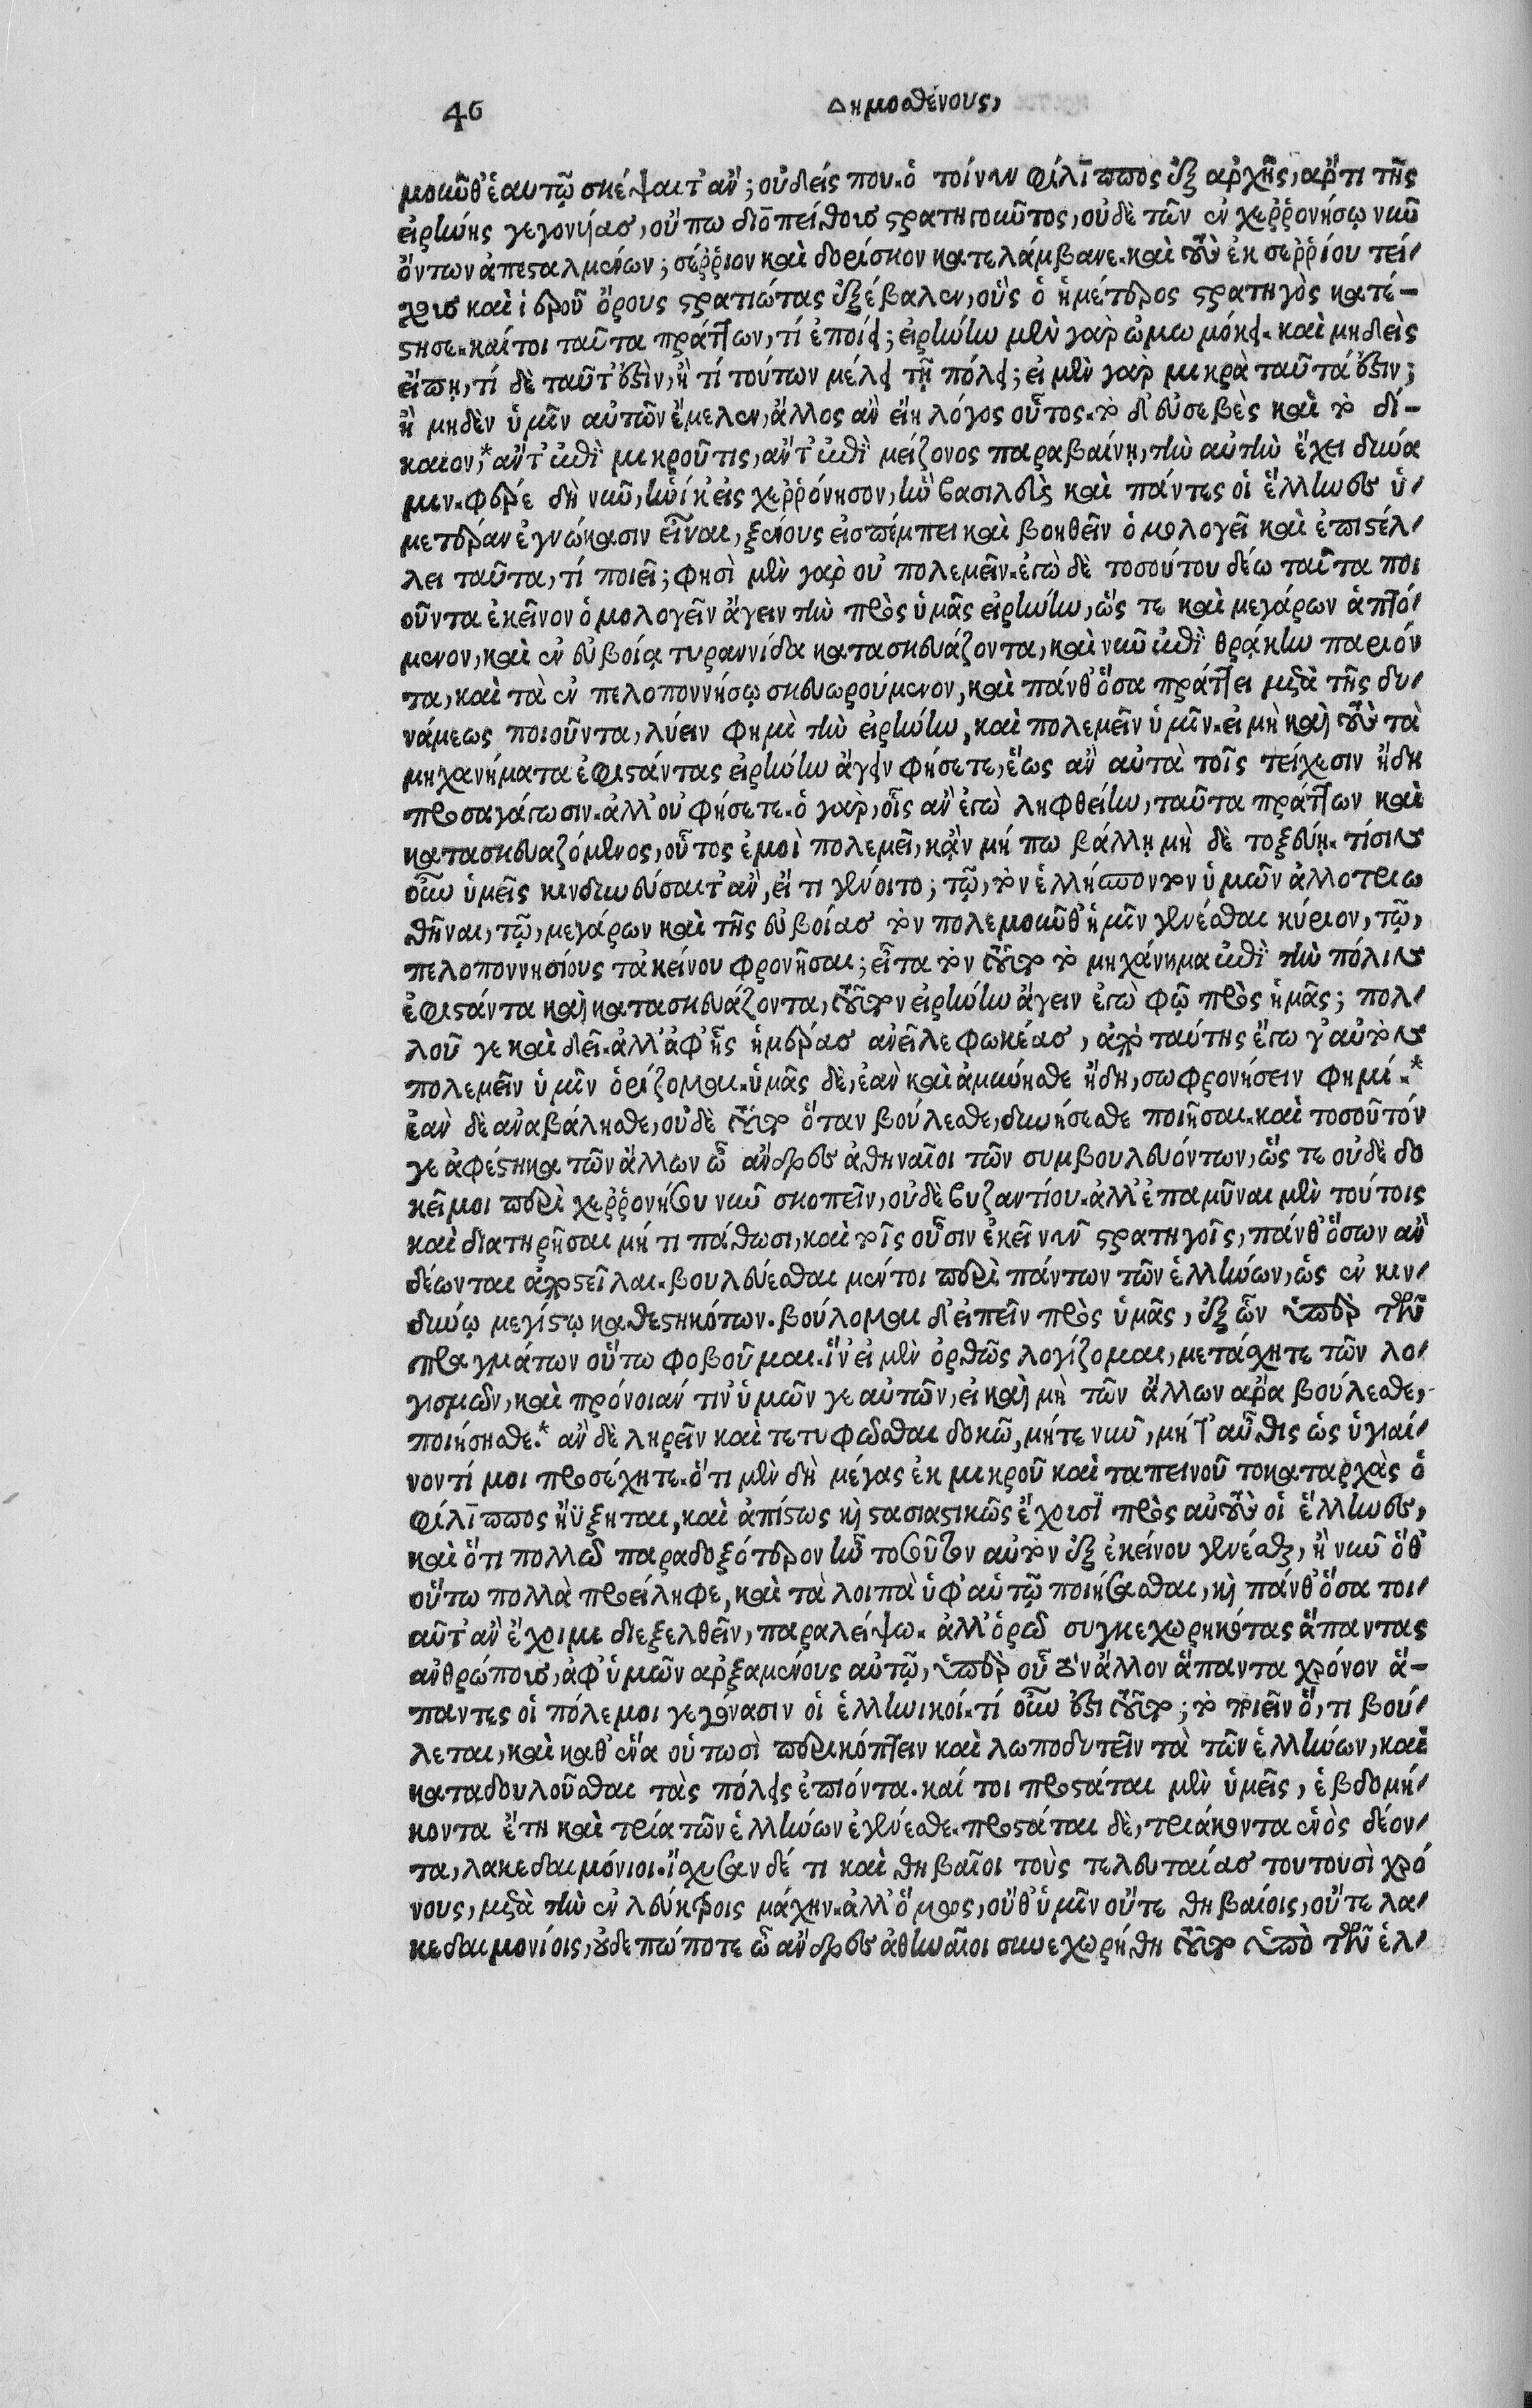 46
Δημοσθένους,
μοῦνθ᾽ ἑαυτῷ σκέψαιτ᾽ ἄν; οὐδείς που. ὁ τοίνυν Φίλιππος ἐξ ἀρχῆς, ἄρτι τῆς
εἰρήνης γεγονυίας, οὔπω διοπείθους στρατηγοῦντος, οὐδὲ τῶν ἐν χερῤῥονήσῳ νῦν
ὄντων ἀπεσταλμένων; σέῤῥιον καὶ δορίσκον κατελάμβανε. καὶ τοὺς ἐκ σεῤῥίου τεί-
χους καὶ ἱεροῦ ὄρους στρατιώτας ἐξέβαλεν, οὓς ὁ ἡμέτερος στρατηγὸς κατέ-
στησε. καίτοι ταῦτα πράττων, τί ἐποίει; εἰρήνην μὲν γὰρ ὠμωμόκει. καὶ μηδεὶς
εἴπῃ, τί δὲ ταῦτ᾽ ἐστὶν, ἢ τί τούτων μέλει τῇ πόλει; εἰ μὲν γὰρ μικρὰ ταῦτά ἐστιν;
ἢ μηδὲν ὑμῖν αὐτῶν ἔμελεν, ἄλλος ἂν εἴη λόγος οὗτος. τὸ δ᾽ εὐσεβὲς καὶ τὸ δί-
καιον,* ἄν τ᾽ ἐπὶ μικροῦ τις, ἄν τ᾽ ἐπὶ μείζονος παραβαίνῃ, τὴν αὐτὴν ἔχει δύνα
μιν. φέρε δὴ νῦν, ἡνίκ᾽ εἰς χεῤῥόνησον, ἣν βασιλεὺς καὶ πάντες οἱ ἕλληνες ὑ-
μετέραν ἐγνώκασιν εἶναι, ξένους εἰσπέμπει καὶ βοηθεῖν ὁμολογεῖ καὶ ἐπιστέλ-
λει ταῦτα, τί ποιεῖ; φησὶ μὲν γὰρ οὐ πολεμεῖν. ἐγὼ δὲ τοσούτου δέω ταῦτα ποι
οῦντα ἐκεῖνον ὁμολογεῖν ἄγειν τὴν πρὸς ὑμᾶς εἰρήνην, ὥς τε καὶ μεγάρων ἁπτό-
μενον, καὶ ἐν εὐβοίᾳ τυραννίδα κατασκευάζοντα, καὶ νῦν ἐπὶ θρᾴκην παριόν
τα, καὶ τὰ ἐν πελοποννήσῳ σκευωρούμενον, καὶ πάνθ᾽ ὅσα πράττει μετὰ τῆς δυ-
νάμεως ποιοῦντα, λύειν φημὶ τὴν εἰρήνην, καὶ πολεμεῖν ὑμῖν. εἰ μὴ καὶ τοὺς τὰ
μηχανήματα ἐφιστάντας εἰρήνην ἄγειν φήσετε, ἕως ἂν αὐτὰ τοῖς τείχεσιν ἤδη
προσαγάγωσιν. ἀλλ᾽ οὐ φήσετε. ὁ γὰρ, οἷς ἂν ἐγὼ ληφθείην, ταῦτα πράττων καὶ
κατασκευαζόμενος, οὗτος ἐμοὶ πολεμεῖ, κᾂν μή πω βάλλῃ μὴ δὲ τοξεύῃ. τίσιν
οὖν ὑμεῖς κινδυνεύσαιτ᾽ ἂν, εἴ τι γένοιτο; τῷ, τὸν ἑλλήσποντον ὑμῶν ἀλλοτριω
θῆναι, τῷ, μεγάρων καὶ τῆς εὐβοίας τὸν πολεμοῦνθ᾽ ἡμῖν γενέσθαι κύριον, τῷ,
πελοποννησίους τἀκείνου φρονῆσαι; εἶτα τὸν τοῦτο τὸ μηχάνημα ἐπὶ τὴν πόλιν
ἐφιστάντα καὶ κατασκευάζοντα, τοῦτον εἰρήνην ἄγειν ἐγὼ φῶ πρὸς ἡμᾶς; πολ-
λοῦ γε καὶ δεῖ. ἀλλ᾽ ἀφ᾽ ἧς ἡμέρας ἀνεῖλε φωκέας, ἀπὸ ταύτης ἔγωγ᾽ αὐτὸν
πολεμεῖν ὑμῖν ὁρίζομαι. ὑμᾶς δὲ, ἐὰν καὶ ἀμύνησθε ἤδη, σωφρονήσειν φημί.*
ἐὰν δὲ ἀναβάλησθε, οὐδὲ τοῦτο ὅταν βούλεσθε, δυνήσεσθε ποιῆσαι. καὶ τοσοῦτόν
γε ἀφέστηκα τῶν ἄλλων ὦ ἄνδρες ἀθηναῖοι τῶν συμβουλευόντων, ὥς τε οὐδὲ δο
κεῖ μοι περὶ χεῤῥονήσου νῦν σκοπεῖν, οὐδὲ βυζαντίου. ἀλλ᾽ ἐπαμῦναι μὲν τούτοις
καὶ διατηρῆσαι μή τι πάθωσι, καὶ τοῖς οὖσιν ἐκεῖ νῦν στρατηγοῖς, πάνθ᾽ ὅσων ἂν
δέωνται ἀποστεῖλαι. βουλεύεσθαι μέντοι περὶ πάντων τῶν ἑλλήνων, ὡς ἐν κιν-
δύνῳ μεγίστῳ καθεστηκότων. βούλομαι δ᾽ εἰπεῖν πρὸς ὑμᾶς, ἐξ ὧν ὑπὲρ τῶν
πραγμάτων οὕτω φοβοῦμαι. ἵν᾽ εἰ μὲν ὀρθῶς λογίζομαι, μετάσχητε τῶν λο-
γισμῶν, καὶ πρόνοιάν τιν᾽ ὑμῶν γε αὐτῶν, εἰ καὶ μὴ τῶν ἄλλων ἄρα βούλεσθε,
ποιήσησθε.* ἂν δὲ ληρεῖν καὶ τετυφῶσθαι δοκῶ, μήτε νῦν, μήτ᾽ αὖθις ὡς ὑγιαί-
νοντί μοι προσέχητε. ὅτι μὲν δὴ μέγας ἐκ μικροῦ καὶ ταπεινοῦ τοκαταρχὰς ὁ
φίλιππος ηὔξηται, καὶ ἀπίστως καὶ στασιαστικῶς ἔχουσι πρὸς αὑτοὺς οἱ ἕλληνες,
καὶ ὅτι πολλῷ παραδοξότερον ἦν τοσοῦτον αὐτὸν ἐξ ἐκείνου γενέσθαι, ἢ νῦν ὅθ᾽
οὕτω πολλὰ προείληφε, καὶ τὰ λοιπὰ ὑφ᾽ αὑτῷ ποιήσασθαι, καὶ πάνθ᾽ ὅσα τοι-
αῦτ᾽ ἂν ἔχοιμι διεξελθεῖν, παραλείψω. ἀλλ᾽ ὁρῶ συγκεχωρηκότας ἅπαντας
ἀνθρώπους, ἀφ᾽ ὑμῶν ἀρξαμένους αὐτῷ, ὑπὲρ οὗ τὸν ἄλλον ἅπαντα χρόνον ἅ-
παντες οἱ πόλεμοι γεγόνασιν οἱ ἑλληνικοί. τί οὖν ἐστι τοῦτο; τὸ ποιεῖν ὅ, τι βού-
λεται, καὶ καθ᾽ ἕνα οὑτωσὶ περικόπτειν καὶ λωποδυτεῖν τὰ τῶν ἑλλήνων, καὶ
καταδουλοῦσθαι τὰς πόλεις ἐπιόντα. καί τοι προστάται μὲν ὑμεῖς, ἑβδομή-
κοντα ἔτη καὶ τρία τῶν ἑλλήνων ἐγένεσθε. προστάται δὲ, τριάκοντα ἑνὸς δέον-
τα, λακεδαιμόνιοι. ἴσχυσαν δέ τι καὶ θηβαῖοι τοὺς τελευταίας τουτουσὶ χρό
νους, μετὰ τὴν ἐν λεύκτροις μάχην. ἀλλ᾽ ὅμως, οὔθ᾽ ὑμῖν οὔτε θηβαίοις, οὔτε λα-
κεδαιμονίοις, οὐδεπώποτε ὦ ἄνδρες ἀθηναῖοι συνεχωρήθη τοῦτο ὑπὸ τῶν ἑλ-